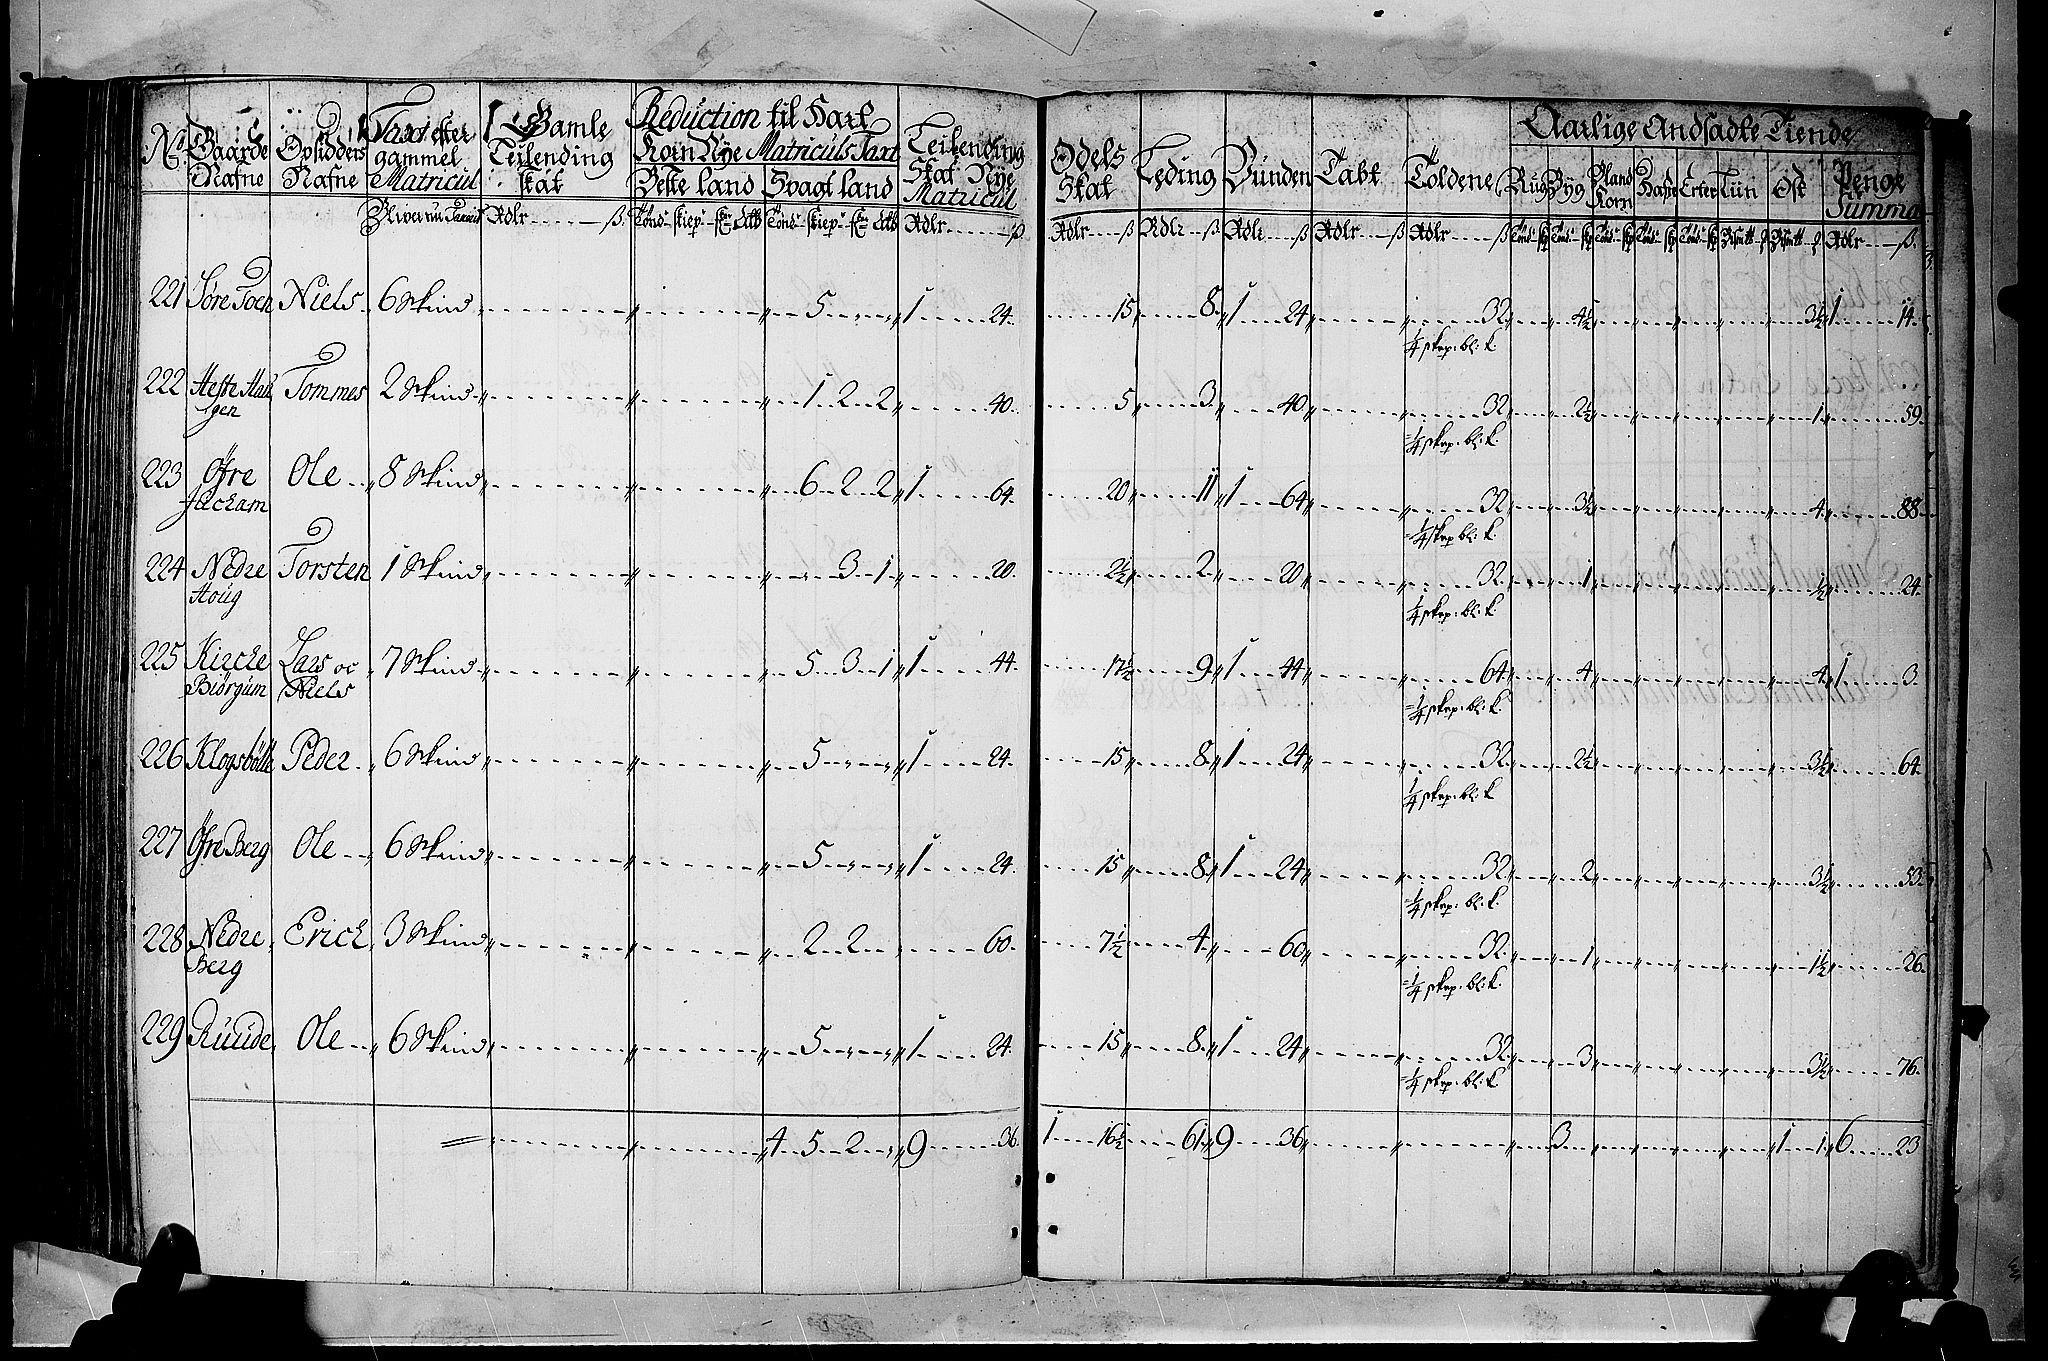 No Gaarde Nafne Opsidders Nafne Taxt efter gammel Matricul Gamle Leilending skat Reduction til Hart Korn Nye Matriculs Taxt Beste land Svagt land Leilending Skat Nye Matricul Odels Skat Leding Vünden Tabt Toldene Aarlige Ansadte Tiende Rug Byg Bland Korn Hafre Erter Liin Ost Penge Summa
Rdlr ß Tönd skiep Rdlr ß Rdlr ß Rdlr ß Rdlr ß Rdlr ß Rdlr ß Rdlr ß
221 Søre Toen Niels 6 Skind 5 1 24 15 8 1 24 32 4½ 3½ 1 14
¼ skep: bl: k.
222 Tommes 2 Skind 1 2 2 40 5 3 40 32 2½ 1 59
gen ¼ skep: bl: k.
223 Øfre Ole 8 Skind 6 2 2 1 64 20 11 1 64 32 3½ 4 88
Jackam ¼ skep bl: k.
224 Nedre Torsten 1 Skind 3 1 20 2½ 2 20 32 1 ½ 24
Houg ¼ skep: bl: k.
225 Kirche Lars oc 7 Skind 5 3 1 1 44 17½ 9 1 44 64 4 4 1 3
Biørgum Niels ¼ skep: bl: k.
226 Peder 6 Skind 5 1 24 15 8 1 24 32 2½ 3½ 64
¼ skep: bl: k
227 Øfre Berg Ole 6 Skind 5 1 24 15 8 1 24 32 2 3½ 53
¼ skep: bl: k.
228 Nedre Erick 3 Skind 2 2 60 7½ 4 60 32 1 1½ 26
Berg ¼ skep: bl: k.
229 Ruude Ole 6 Skind 5 1 24 15 8 1 24 32 3 3½ 76
¼ skep: bl: k.
4 5 2 9 36 1 16½ 61 9 36 3 1 1 6 23